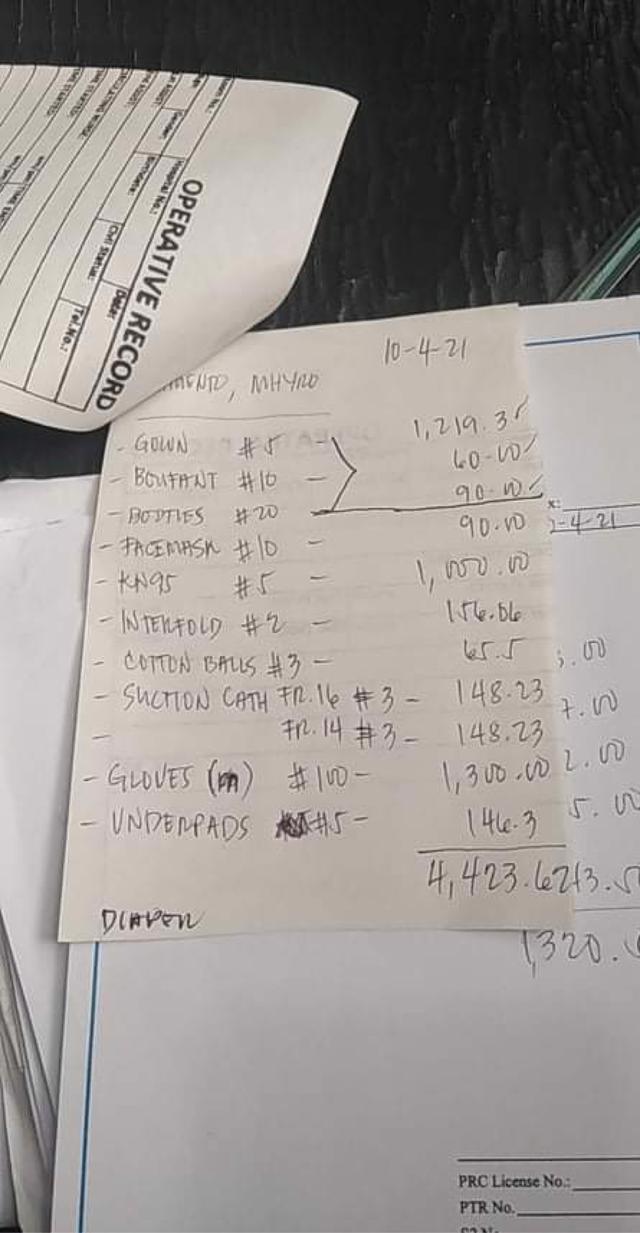 OPERATIVE RECORD
Hospital No.:
Date:
Gender:
Birthdate:
Civil Status:
Tel.No.:
10-4-21
MENTO, MHYRO
- GOWN #5 - 1,219.3
- BOUFANT #10 - 60.00
- BOOTIES #20 - 90.00
- FACEMASK #10 - 90.00
- KN95 #5 - 1,000.00
- INTERFOLD #2 - 156.06
- COTTON BALLS #3 - 65.5
- SUCTION CATH FR.16 #3 - 148.23
- FR.14 #3 - 148.23
- GLOVES (M) #100 - 1,300.00
- UNDERPADS #5 - 146.3
4,423.62
DIAPER
-4-21
.00
7.00
2.00
5.00
13.5
1,320.
PRC License No.:
PTR No.